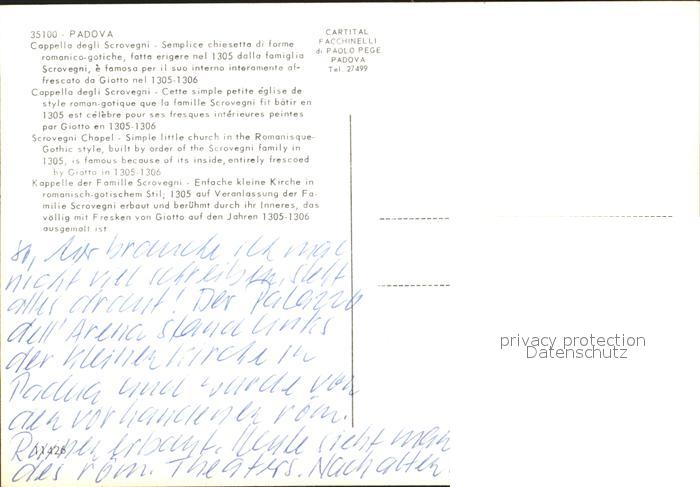 35100 - PADOVA
Cappella degli Scrovegni - Semplice chiesetta di forme
romanico-gotiche, fatta erigere nel 1305 dalla famiglia
Scrovegni, è famosa per il suo interno interamente af-
frescato da Giotto nel 1305-1306
Cappella degli Scrovegni - Cette simple petite église de
style roman-gotique que la famille Scrovegni fit bâtir en
1305 est célèbre pour ses fresques intérieures peintes
par Giotto en 1305-1306
Scrovegni Chapel - Simple little church in the Romanisque-
Gothic style, built by order of the Scrovegni family in
1305, is famous because of its inside, entirely frescoed
by Giotto in 1305-1306
Kappelle der Famille Scrovegni - Enfache kleine Kirche in
romanisch-gotischem Stil; 1305 auf Veranlassung der Fa-
milie Scrovegni erbaut und berühmt durch ihr Inneres, das
völlig mit Fresken von Giotto auf den Jahren 1305-1306
ausgemalt ist
CARTITAL
FACCHINELLI
di PAOLO PEGE
PADOVA
Tel. 27499
So, hier brauche ich mal
nicht viel schreiben, steht
alles drauf! Der Palazzo
dell'Arena stand links
der kleinen Kirche in
Padua und wurde von
den vorhandenen röm.
erbaut. Heute sieht man
des röm. Theaters. Nach alten
privacy protection
Datenschutz